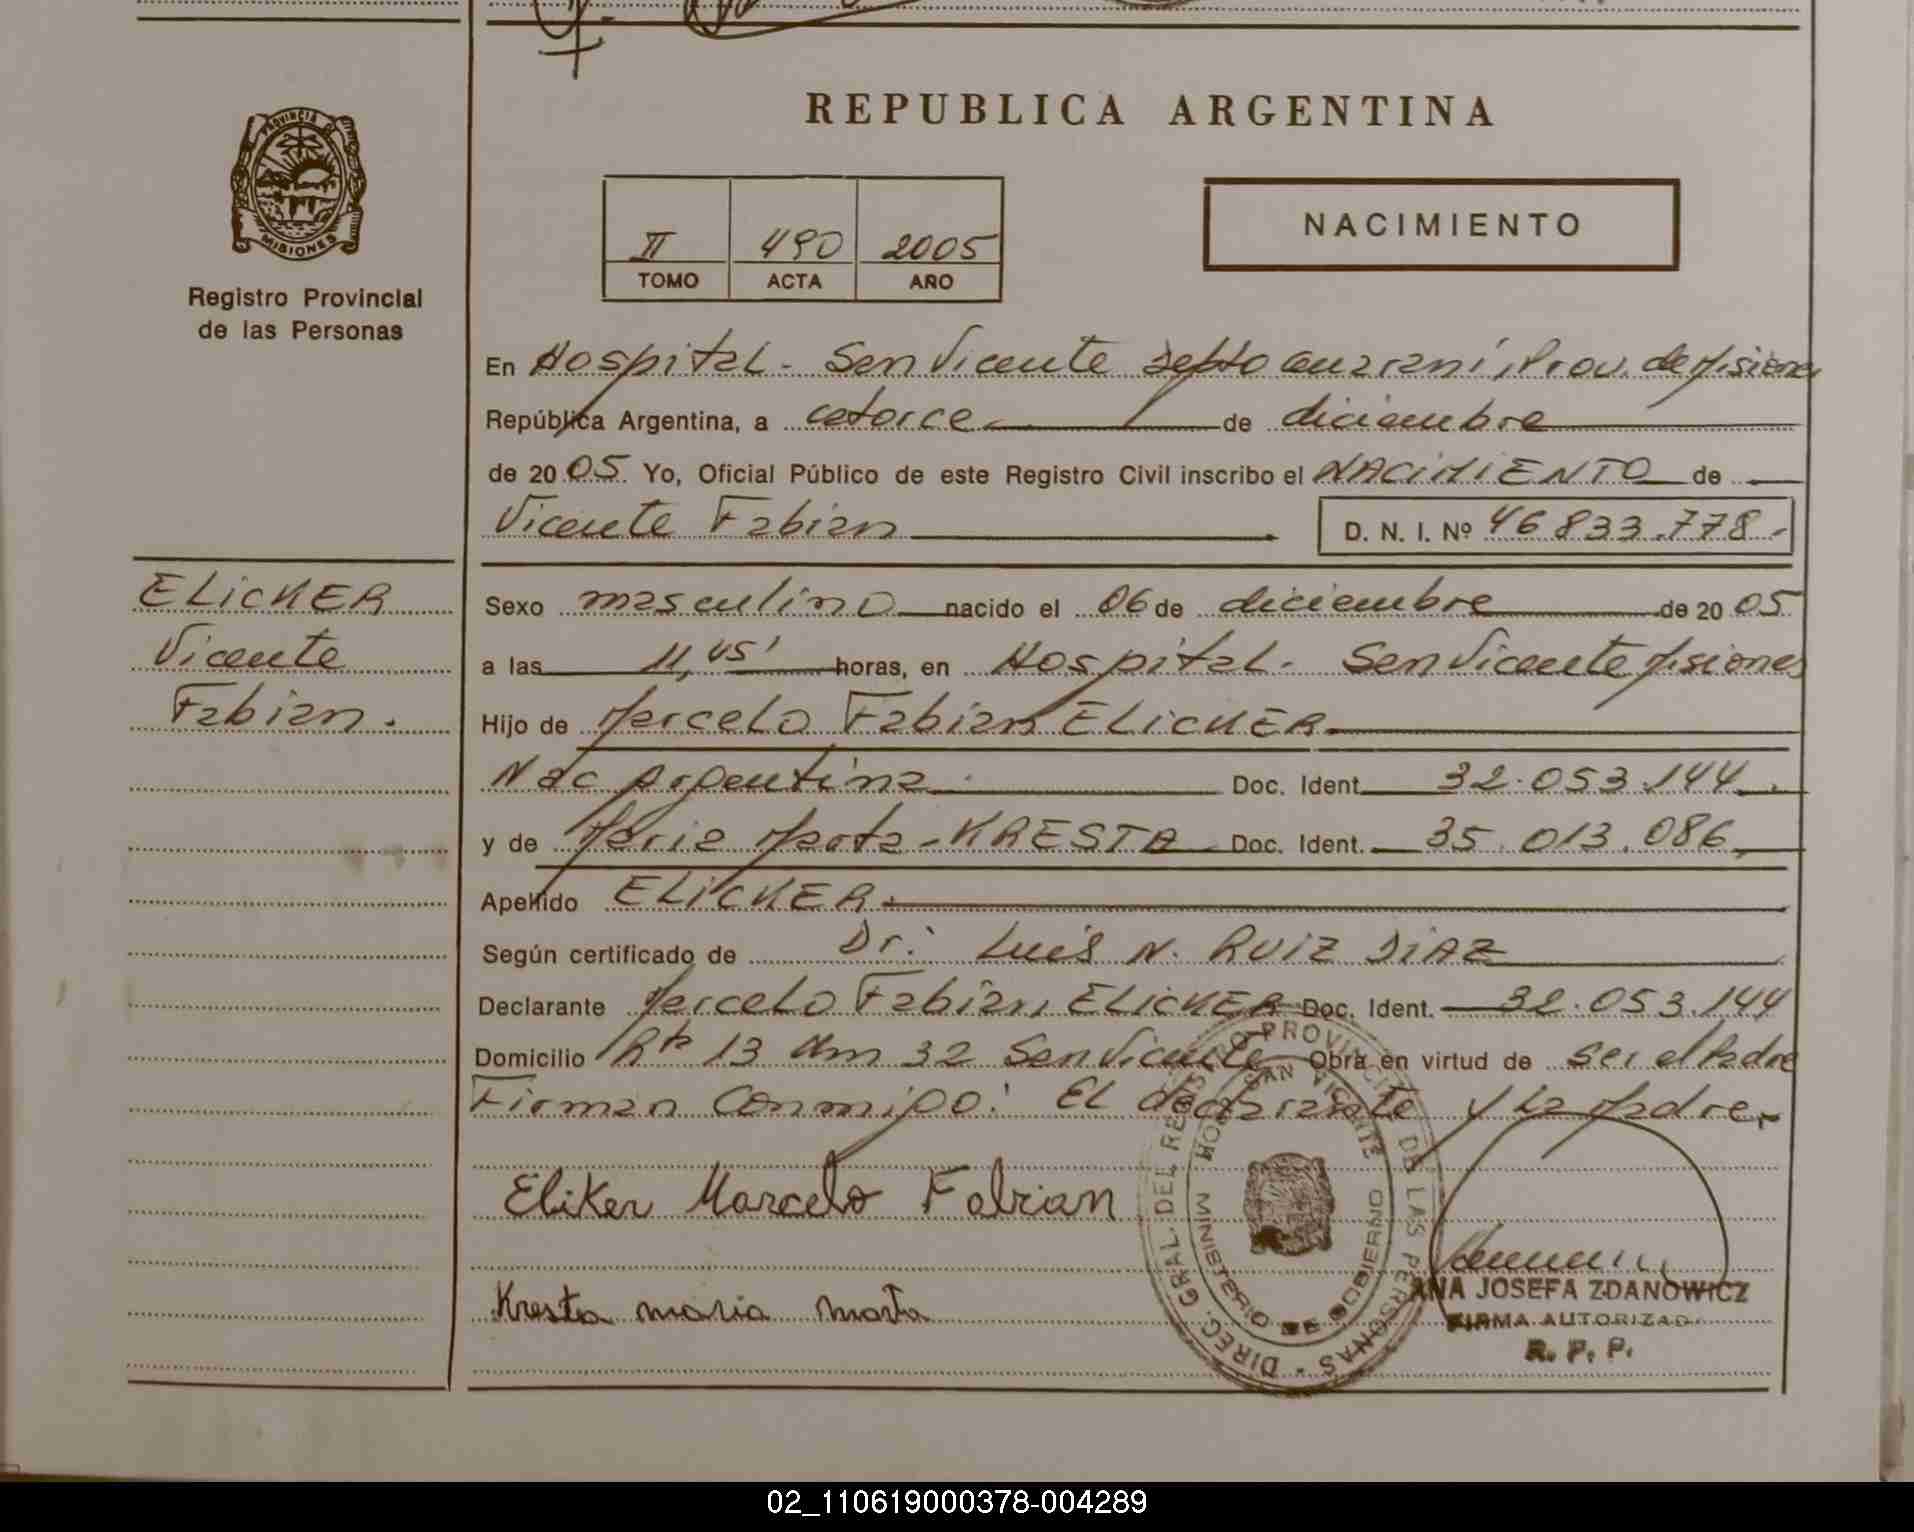 REPUBLICA ARGENTINA
PROVINCIA DE
MISIONES
Registro Provincial
de las Personas
II 490 2005
TOMO ACTA AÑO
NACIMIENTO
En Hospital - San Vicente Depto Guarani, Prov. de Misiones
República Argentina, a catorce de diciembre
de 2005. Yo, Oficial Público de este Registro Civil inscribo el NACIMIENTO de
Vicente Fabian
D. N. I. Nº 46 833.778.-
ELICKER
Vicente
Fabian.
Sexo masculino nacido el 06 de diciembre de 2005
a las 11,45' horas, en Hospital - San Vicente Misiones
Hijo de Marcelo Fabian ELICKER
Nac Argentina Doc. Ident. 32.053.144
y de Maria Marta - KRESTA Doc. Ident. 35.013.086
Apellido ELICKER
Según certificado de Dr: Luis N. RUIZ DIAZ
Declarante Marcelo Fabian ELICKER Doc. Ident. 32.053.144
Domicilio Rta 13 Km 32 San Vicente Obra en virtud de ser el Padre
Firman Conmigo: El declarante y la Madre
Eliker Marcelo Fabian
Kresta maria marta
DIREC. GRAL. DEL REGISTRO PROVINCIAL DE LAS PERSONAS
SAN VICENTE
MINISTERIO DE GOBIERNO
ANA JOSEFA ZDANOWICZ
FIRMA AUTORIZADA
R. P. P.
02_110619000378-004289